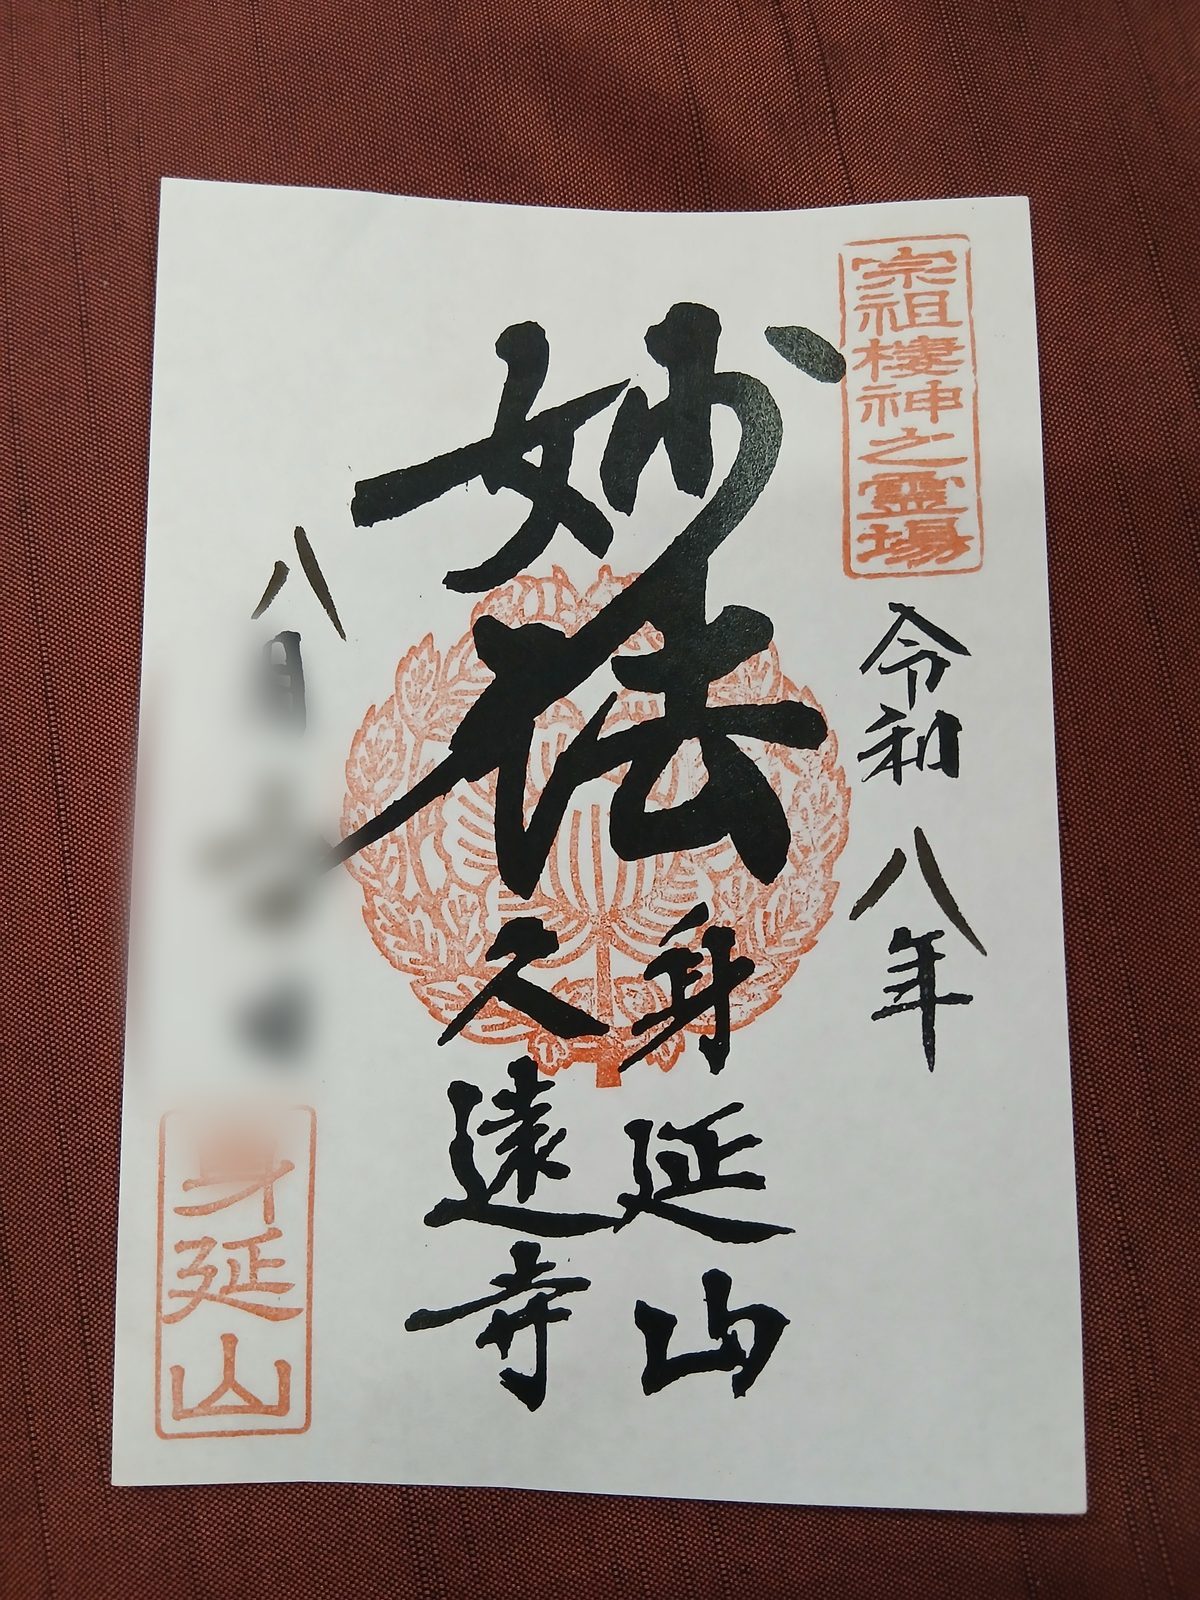 宗祖棲神之霊場
令和八年
妙法
身延山
久遠寺
八月
身延山